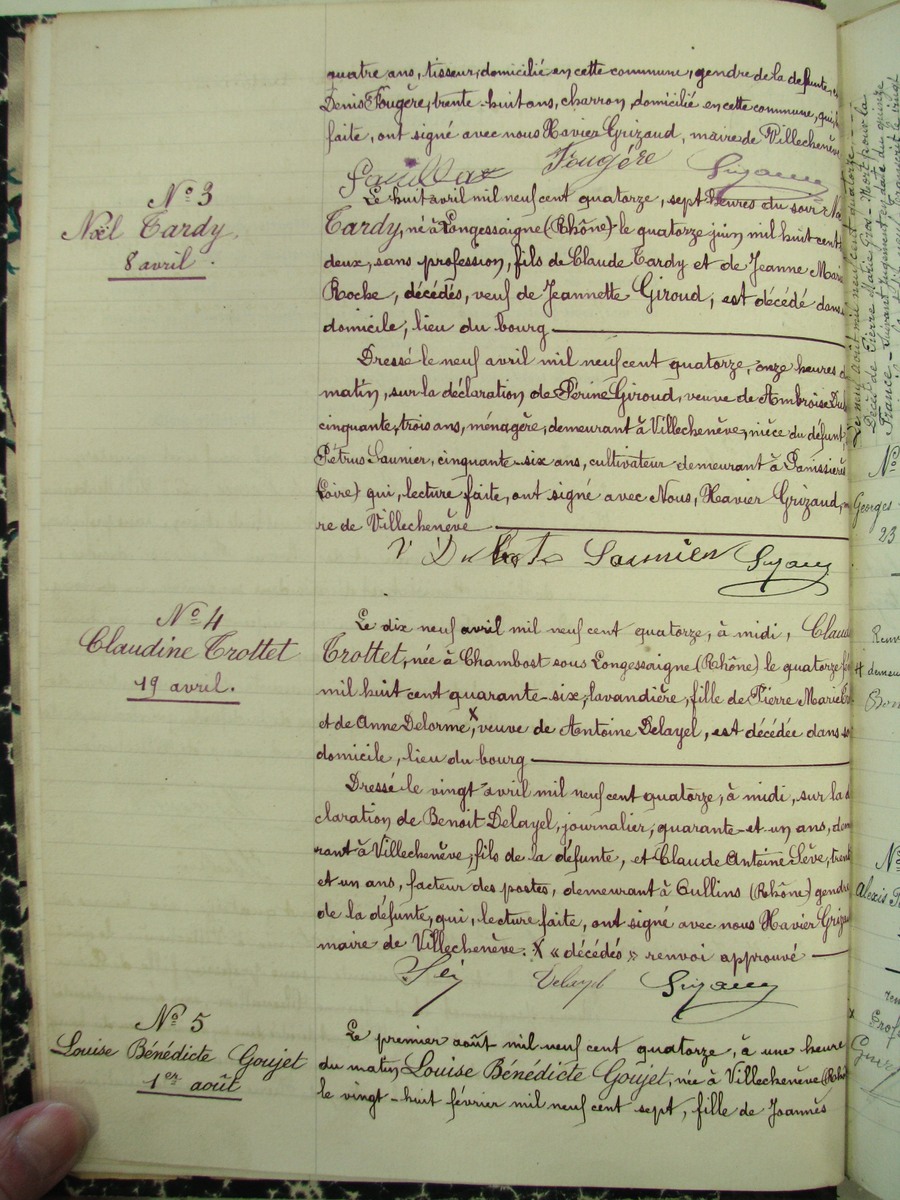 quatre ans, tisseur, domicilié en cette commune, gendre de la défunte,
Denis Fougère, trente-huit ans, charron, domicilié en cette commune, qui,
faite, ont signé avec nous Xavier Grizaud, maire de Villechenève
Fougère
N° 3
Noël Tardy
8 avril.
Le huit avril mil neuf cent quatorze, sept heures du soir
Tardy, né à Longessaigne (Rhône) le quatorze juin mil huit cent
deux, sans profession, fils de Claude Tardy et de Jeanne Marie
Roche, décédés, veuf de Jeannette Giroud, est décédé dans
domicile, lieu du bourg
Dressé le neuf avril mil neuf cent quatorze, onze heures
matin, sur la déclaration de Périne Giroud, veuve de Ambroise
cinquante, trois ans, ménagère, demeurant à Villechenève, nièce du défunt,
Pétrus Saunier, cinquante-six ans, cultivateur demeurant à Panissières
(Loire) qui, lecture faite, ont signé avec Nous, Xavier Grizaud,
re de Villechenève
Saunier
N° 4
Claudine Trottet
19 avril.
Le dix neuf avril mil neuf cent quatorze, à midi,
Trottet, née à Chambost sous Longessaigne (Rhône) le quatorze
mil huit cent quarante-six, lavandière, fille de Pierre Marie
et de Anne Delorme, X veuve de Antoine Delayel, est décédée dans
domicile, lieu du bourg
Dressé le vingt avril mil neuf cent quatorze, à midi, sur la
claration de Benoit Delayel, journalier, quarante-et un ans,
rant à Villechenève, fils de la défunte, et Claude Antoine Sève,
et un ans, facteur des postes, demeurant à Oullins (Rhône) gendre
de la défunte, qui, lecture faite, ont signé avec nous Xavier
maire de Villechenève. X « décédés » renvoi approuvé
Delayel
N° 5
Louise Bénédicte Goujet
1er août
Le premier août mil neuf cent quatorze, à une heure
du matin Louise Bénédicte Goujet, née à Villechenève
le vingt-huit février mil neuf cent sept, fille de Joannès
N°
Georges
23
N°
Alexis